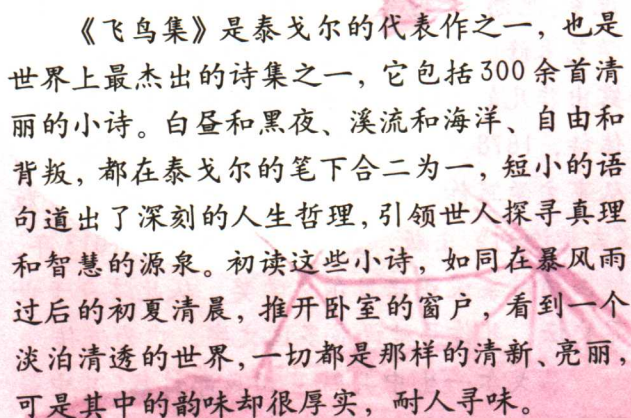 《飞鸟集》是泰戈尔的代表作之一，也是
世界上最杰出的诗集之一，它包括300余首清
丽的小诗。白昼和黑夜、溪流和海洋、自由和
背叛，都在泰戈尔的笔下合二为一，短小的语
句道出了深刻的人生哲理，引领世人探寻真理
和智慧的源泉。初读这些小诗，如同在暴风雨
过后的初夏清晨，推开卧室的窗户，看到一个
淡泊清透的世界，一切都是那样的清新、亮丽，
可是其中的韵味却很厚实，耐人寻味。